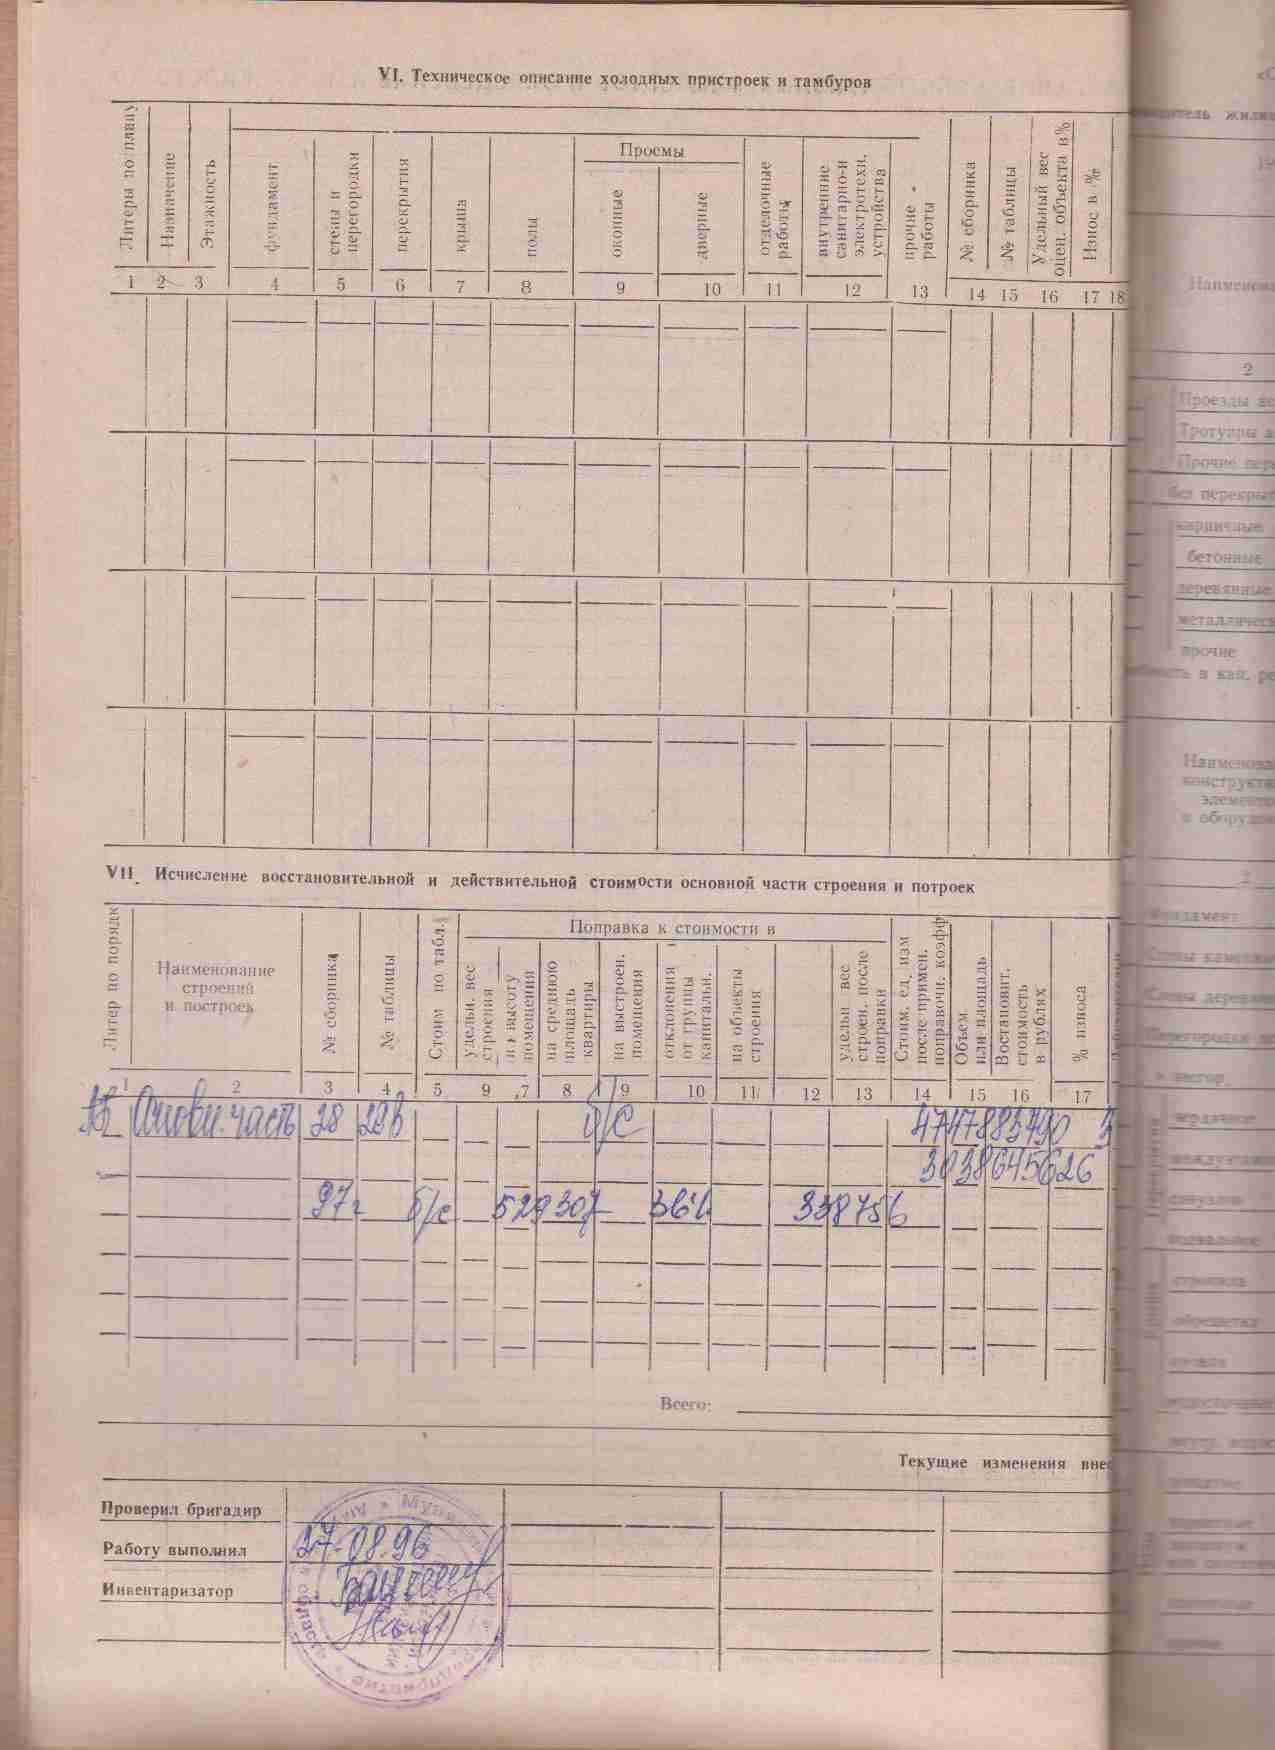 VI. Техническое описание холодных пристроек и тамбуров
Литеры по плану
Назначение
Этажность
фундамент
стены и
перегородки
перекрытия
крыша
полы
Проемы
оконные
дверные
отделочные
работы
внутренние
санитарно-и
электротехн.
устройства
прочие
работы
№ сборника
№ таблицы
Удельный вес
оцен. объекта в %
Износ в %
1 2 3 4 5 6 7 8 9 10 11 12 13 14 15 16 17 18
VII. Исчисление восстановительной и действительной стоимости основной части строения и потроек
Литер по порядк
Наименование
строений
и построек
№ сборника
№ таблицы
Стоим по табл.
Поправка к стоимости в
удельн. вес
строения
на высоту
помещения
на среднюю
площадь
квартиры
на выстроен.
помещения
отклонения
от группы
капитальн.
на объекты
строения
удельн вес
строен. после
поправки
Стоим. ед. изм
после примен.
поправочн. коэфф
Объем
или площадь
Востановит.
стоимость
в рублях
% износа
1 2 3 4 5 9 7 8 9 10 11 12 13 14 15 16 17
Основн. часть 28 29в б/с 4747883490 3
3038645626
97г б/с 529307 36% 338756
Всего:
Текущие изменения внес
Проверил бригадир
Работу выполнил 27-08.96
Инвентаризатор
предприятие
2
Проезды
Тротуары
Прочие
без перекрыт
кирпичные
бетонные
деревянные
металлическ
прочие
Наименова
конструкти
элементо
и оборудов
2